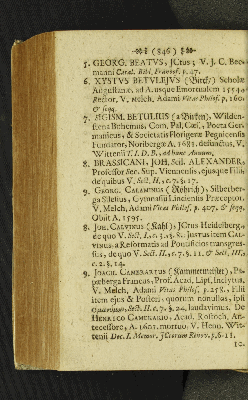 (846)
5. GEORG. BEATUS, JCtus; V. J. C. Bec-
manni Catal. Bibl. Francof. p. 47.
6. XYSTVS BETULEJVS (Birck) Scholæ
Augustanæ, ad A. usque Emortualem 1554.
Rector, V. Melch. Adami Vitas Philos. p. 160.
& seqq.
7. ÆGISM. BETULIUS (à Bircken), Wilden-
stena Bohemus, Com. Pal. Cæs., Poeta Ger-
manicus, & Societatis Florigeræ Pegnicensis
Fundator, Noribergæ A. 1681. defunctus, V.
Wittenii T. I. D. B., ad hunc Annum.
8. BRASSICANI, JOH. Scil. ALEXANDER,
Professor Sec. Sup. Viennensis, ejusque Filii,
de quibus V. Sect. II, c. 7. §. 17.
9. GEORG. CALAMINUS (Röhrich), Silberber-
ga Silesius, Gymnasii Lincienis Præceptor,
V. Melch. Adami Vitas Philos. p. 407. & seqq.
Obiit A. 1595.
8. JOH. CALVINUS (Kahl), JCtus Heidelberg.,
de quo V. Sect. I, c. 3. §. 8. Justus item Cal-
vinus, à Reformatis ad Pontificios transgres-
sus, de quo V. Sect. II, c. 7. §. 11. & Sect. III,
c. 2. §. 14.
9. JOACH. CAMERARIUS (Kammermeister), Pa-
pæberga Francus, Prof. Acad. Lips. inclytus,
V. Melch. Adami Vitas Philos. p. 258., Filii
item ejus & Posteri, quorum nonullos, ipsi
Quaevimus, Sect. II, c. 7. §. 24, laudavimus. De
HENRICO CAMERARIO, Acad. Rostoch. An-
tecessore, A. 1601. mortuo, V. Henn. Wit-
tenii Dec. I. Memor. JCtorum Renov. p. 6-13.
10.